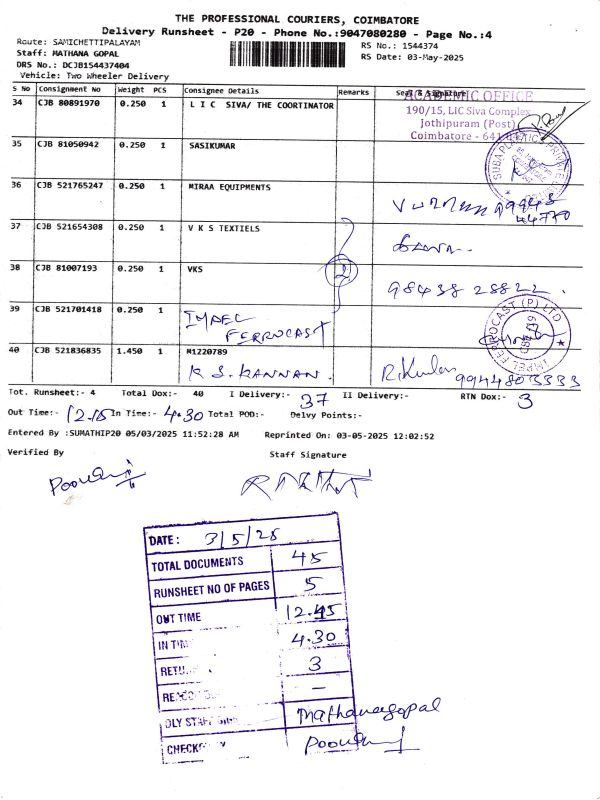 THE PROFESSIONAL COURIERS, COIMBATORE
Delivery Runsheet - P20 - Phone No.:9047080280 - Page No.:4
Route: SAMICHETTIPALAYAM
Staff: MATHANA GOPAL
RS No.: 1544374
DRS No.: DCJB154437404
RS Date: 03-May-2025
Vehicle: Two Wheeler Delivery
S No Consignment No Weight PCS Consignee Details Remarks Seal & Signature
34 CJB 80891970 0.250 1 L I C SIVA/ THE COORTINATOR
ACADEMIC OFFICE
190/15, LIC Siva Complex
Jothipuram (Post)
Coimbatore - 641
35 CJB 81050942 0.250 1 SASIKUMAR
36 CJB 521765247 0.250 1 MIRAA EQUIPMENTS
99948
44770
37 CJB 521654308 0.250 1 V K S TEXTIELS
38 CJB 81007193 0.250 1 VKS 2
98438 28822
39 CJB 521701418 0.250 1 IMPEL
FERROCAST
IMPEL FERROCAST (P) LTD
40 CJB 521836835 1.450 1 M1220789
K S. KANNAN
9944803333
Tot. Runsheet:- 4 Total Dox:- 40 I Delivery:- 37 II Delivery:- RTN Dox:- 3
Out Time:- 12.15 In Time:- 4.30 Total POD:- Delvy Points:-
Entered By :SUMATHIP20 05/03/2025 11:52:28 AM Reprinted On: 03-05-2025 12:02:52
Verified By Staff Signature
DATE : 3/5/25
TOTAL DOCUMENTS 45
RUNSHEET NO OF PAGES 5
OUT TIME 12.45
IN TIME 4.30
3
-
DLY STAFF SIGN Mathanagopal